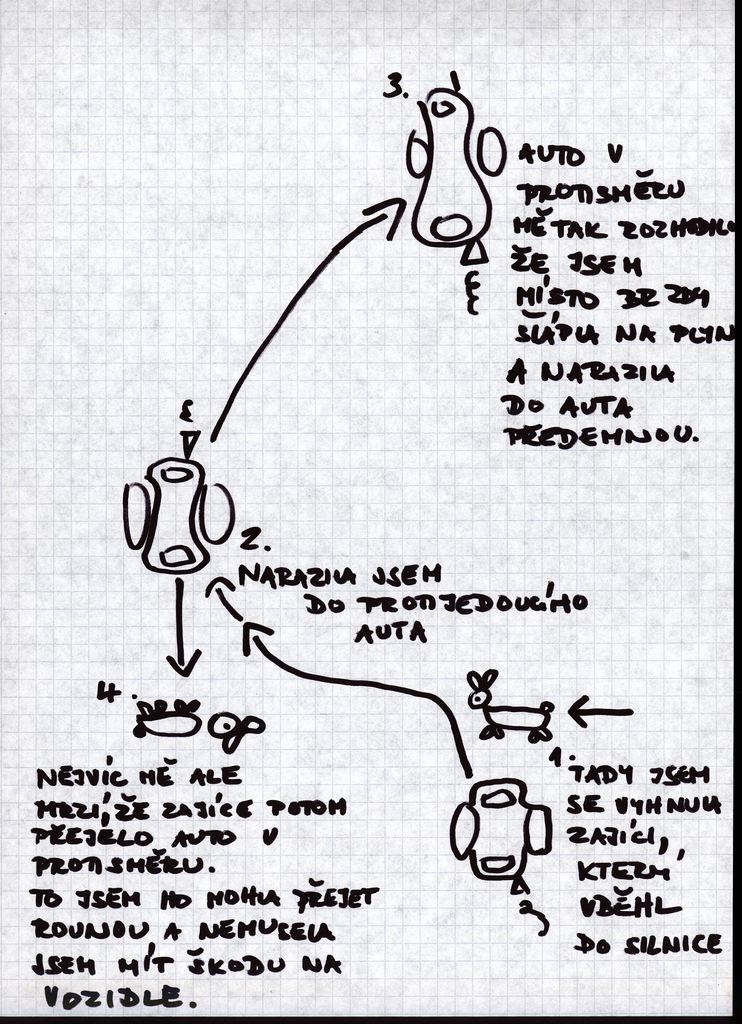 3.
AUTO V
PROTISMĚRU
MĚ TAK ROZHODILO
ŽE JSEM
MÍSTO BRZDY
ŠLÁPLA NA PLYN
A NARAZILA
DO AUTA
PŘEDEMNOU.
2.
NARAZILA JSEM
DO PROTIJEDOUCÍHO
AUTA
1.
TADY JSEM
SE VYHNULA
ZAJÍCI,
KTERÝ
VBĚHL
DO SILNICE
4.
NEJVÍC MĚ ALE
MRZÍ, ŽE ZAJÍCE POTOM
PŘEJELO AUTO V
PROTISMĚRU.
TO JSEM HO MOHLA PŘEJET
ROVNOU A NEMUSELA
JSEM MÍT ŠKODU NA
VOZIDLE.